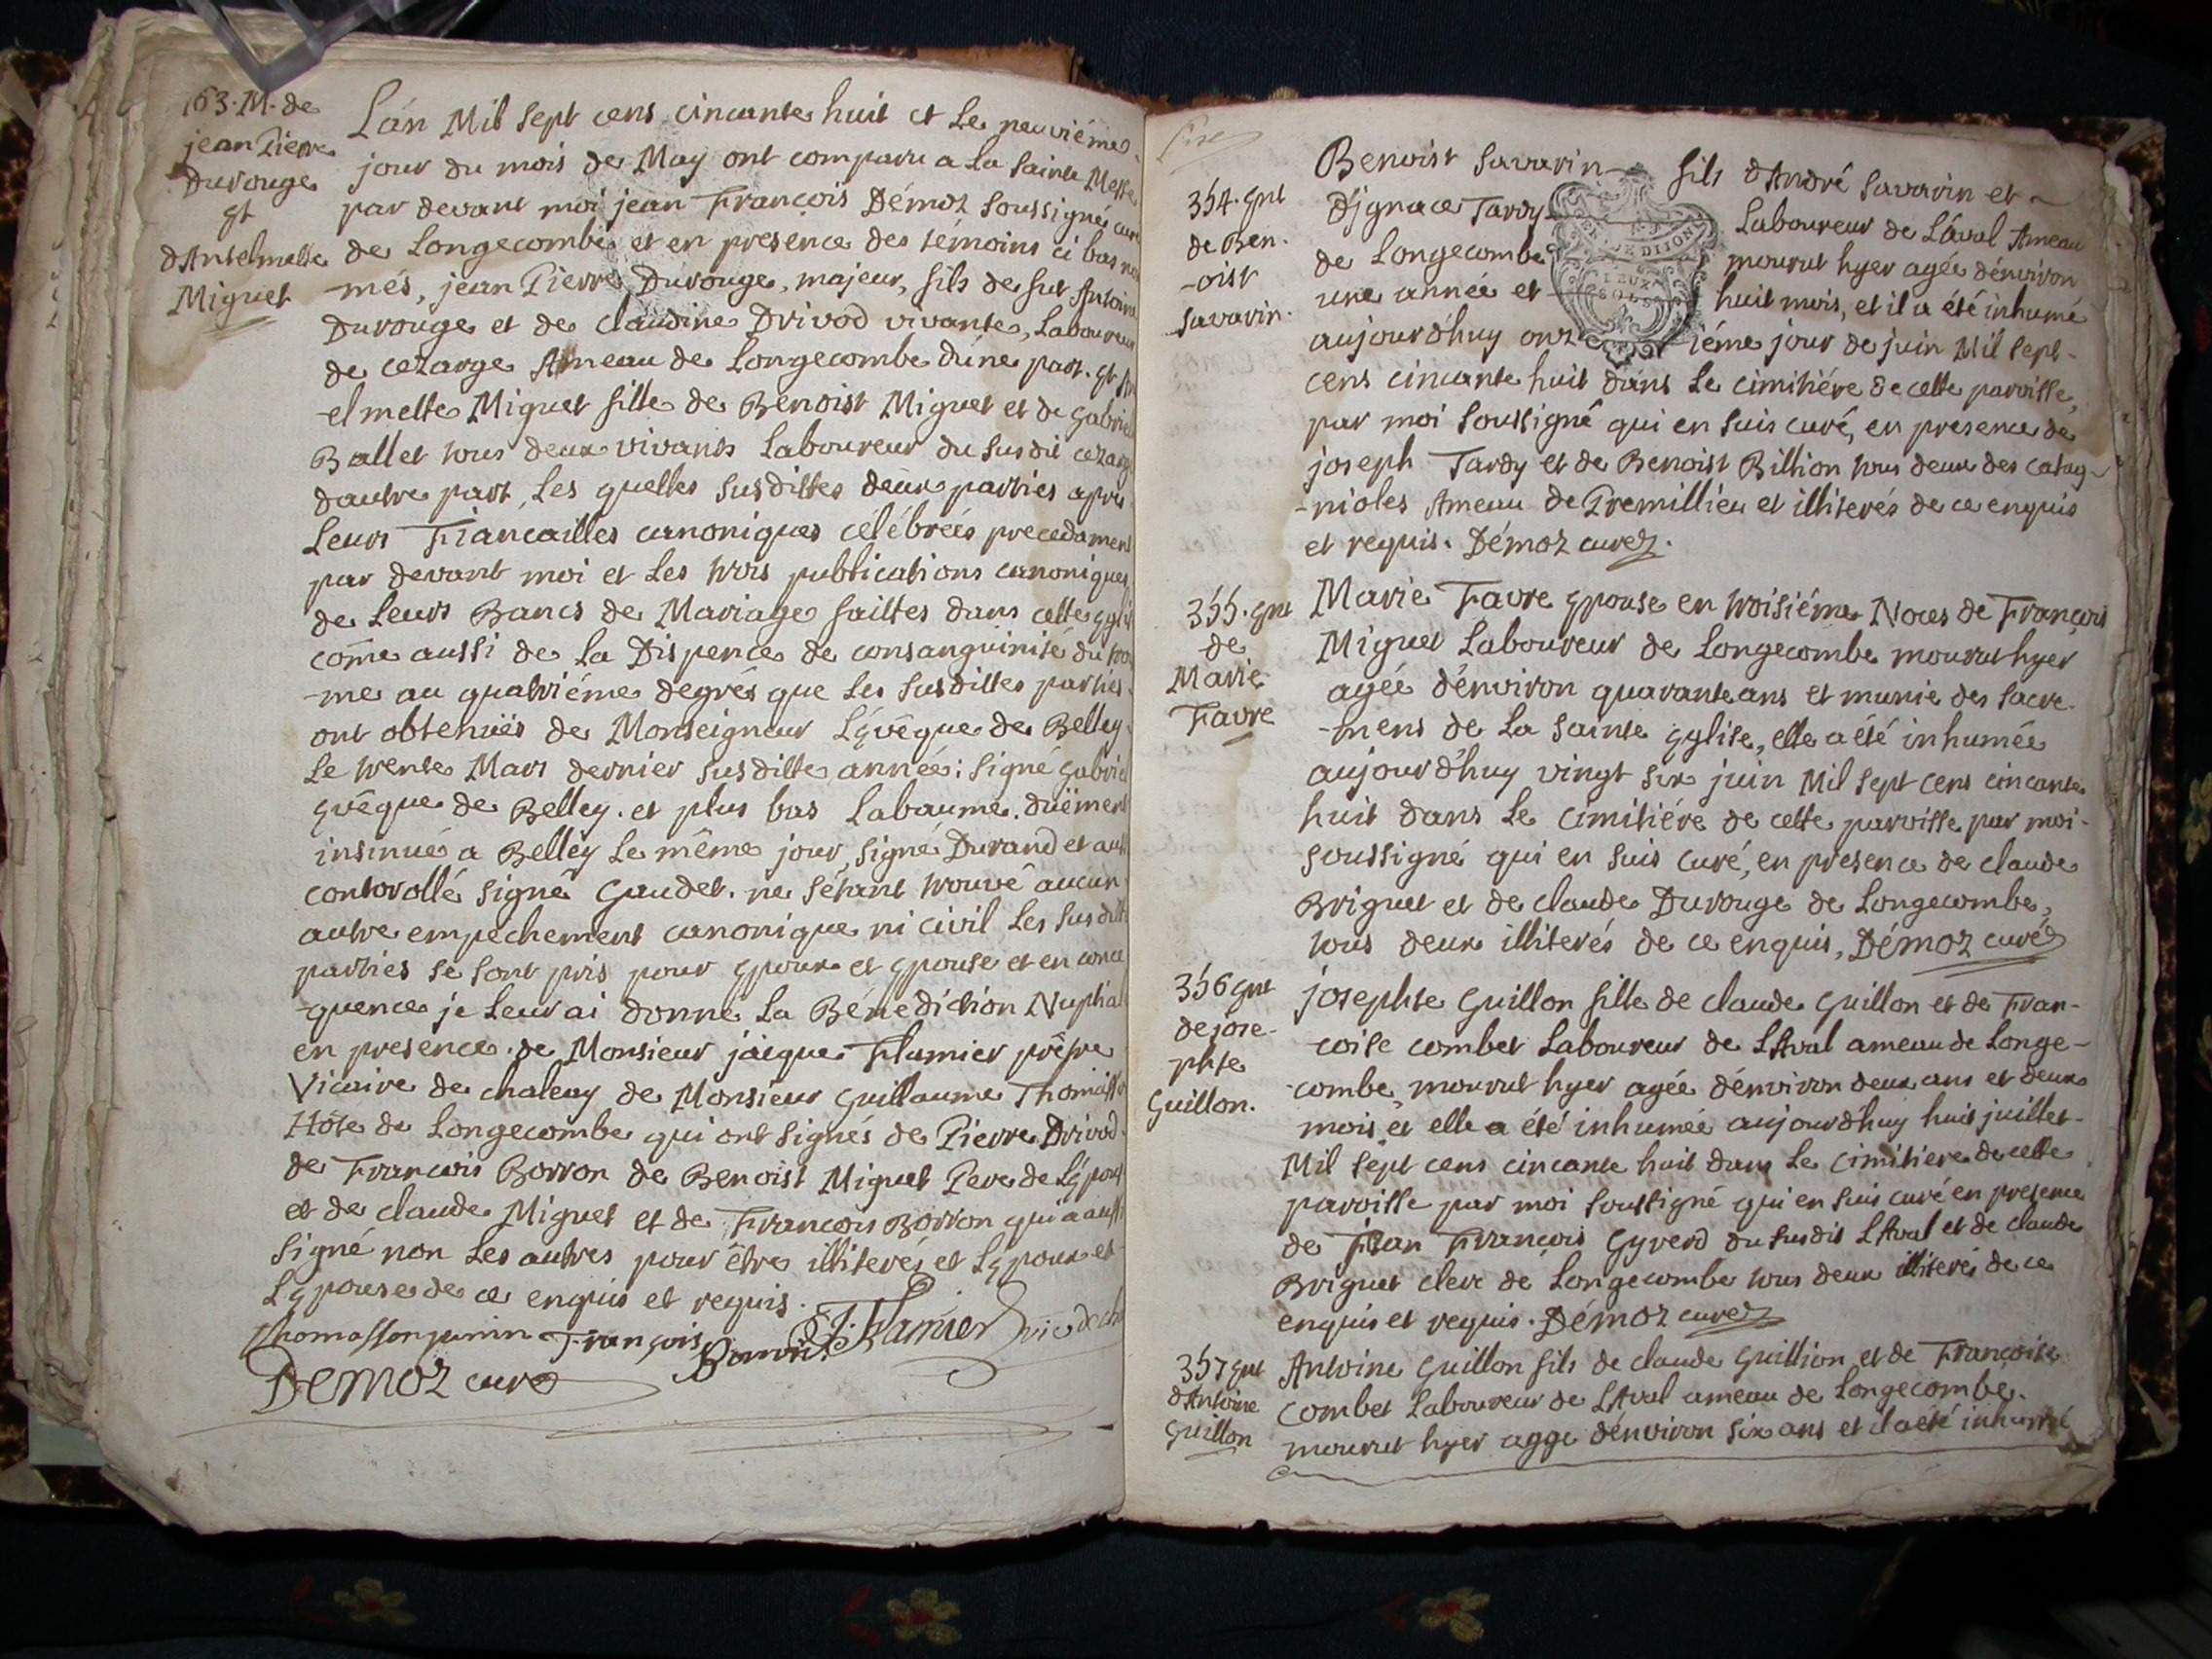 163. M. de
jean Pierre
Durouge
et
d'Antelmette
Miguet
L'an Mil sept cens cincante huit et Le neuviéme
jour du mois de May ont comparu a La sainte Messe
par devant moi jean François Démoz soussigné curé
de Longecombe et en presence des témoins ci bas
-més, jean Pierre Durouge, majeur, fils de fut Antoine
Durouge et de claudine Drivod vivante, Laboureur
de cezarge Ameau de Longecombe d'une part. et An
-elmette Miguet fille de Benoist Miguet et de Gabriel
Ballet tous deux vivants Laboureur du susdit cezarge
dautre part, Les quelles susdittes deux parties apres
Leurs Fiançailles canoniques célébrées precedament
par devant moi et Les trois publications canoniques
de Leurs Bancs de Mariage faittes dans cette eglise
come aussi de La Dispence de consanguinité du troi
-me au quatriéme degrés que Les susdittes parties
ont obtenües de Monseigneur L'évêque de Belley
Le trente Mars dernier susditte année: signé gabriel
évêque de Belley. et plus bas Labaume. düement
insinué a Belley Le même jour, signé Durand et
controllé signé Gaudet. ne s'étant trouvé aucun
autre empechement canonique ni civil Les susdittes
parties se sont pris pour epoux et epouse et en conce
-quence je Leur ai donné La Bénédiction Nuptial
en presence de Monsieur jacque Flamier prêtre
Vicaire de chaley de Monsieur Guillaume Thomasson
Hôte de Longecombe qui ont signés de Pierre Drivod
de François Borron de Benoist Miguet Pere de L'epouse
et de claude Miguet et de François Borron qui a aussi
signé non Les autres pour être illiterés et L'epoux et
L'epouse de ce enquis et requis.
thomasson François Borron J: Flamier vic de
Démoz curé
354. ent
de Ben-
-oist
Savarin.
Benoist Savarin fils d'André Savarin et
d'jgnace Tardy Laboureur de Lával Ameau
de Longecombe mourut hyer agée d'environ
une année et huit mois, et il a été inhumé
aujourd'huy onziéme jour de juin Mil sept-
cens cincante huit dans Le cimitiére de cette paroisse,
par moi soussigné qui en suis curé, en presence de
joseph Tardy et de Benoist Billion tous deux des catag-
-nioles Ameau de Premillieu et illiterés de ce enquis
et requis. Démoz curéz.
355. ent
de
Marie
Favre
Marie Favre epouse en troisiéme Noces de François
Miguet Laboureur de Longecombe mourut hyer
agée d'environ quarante ans et munie des sacre-
-mens de La sainte eglise, elle a été inhumée
aujourd'huy vingt six juin Mil sept cens cincante
huit dans Le cimitiére de cette paroisse par moi-
soussigné qui en suis curé, en presence de claude
Briguet et de claude Durouge de Longecombe,
tous deux illiterés de ce enquis, Démoz curé
356 ent
de jose-
phte
Guillon.
josephte Guillon fille de claude Guillon et de Fran-
-coise combet Laboureur de LAval ameau de Longe-
-combe, mourut hyer agée d'environ deux ans et deux
mois et elle a été inhumée aujourd'huy huit juillet-
Mil sept cens cincante huit dans Le cimitiere de cette
paroisse par moi soussigné qui en suis curé en presence
de jean François Gyrerd du susdit LAval et de claude
Briguet clerc de Longecombe tous deux illiterés de ce
enquis et requis. Démoz curéz
357 ent
d'Antoine
Guillon
Antoine Guillon fils de claude Guillion et de Françoise
combet Laboureur de LAval ameau de Longecombe.
mourut hyer agge d'environ six ans et il a été inhumé